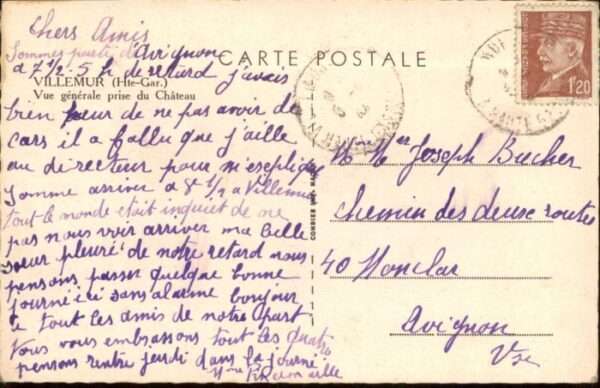 Chers Amis
Sommes partis d'Avignon
CARTE POSTALE
a 7 1/2 - 5 h de retard j'avais
VILLEMUR (Hte-Gar.)
Vue générale prise du Château
bien peur de ne pas avoir de
cars il a fallu que j'aille
au directeur pour m'expliquer
somme arriver a 8 1/2 a Villemur
tout le monde etait inquiet de ne
pas nous voir arriver ma belle
sœur pleuré de notre retard nous
pensons passer quelque bonne
journé ici sans alarme bonjour
a tout les amis de notre part
Vous vous embrassons tout les quatre
pensons rentre jeudi dans la journé
Mme
COMBIER IMP.
1F20
M. Mme Joseph Bucher
chemin des deux routes
40 Monclar
Avignon
Vse